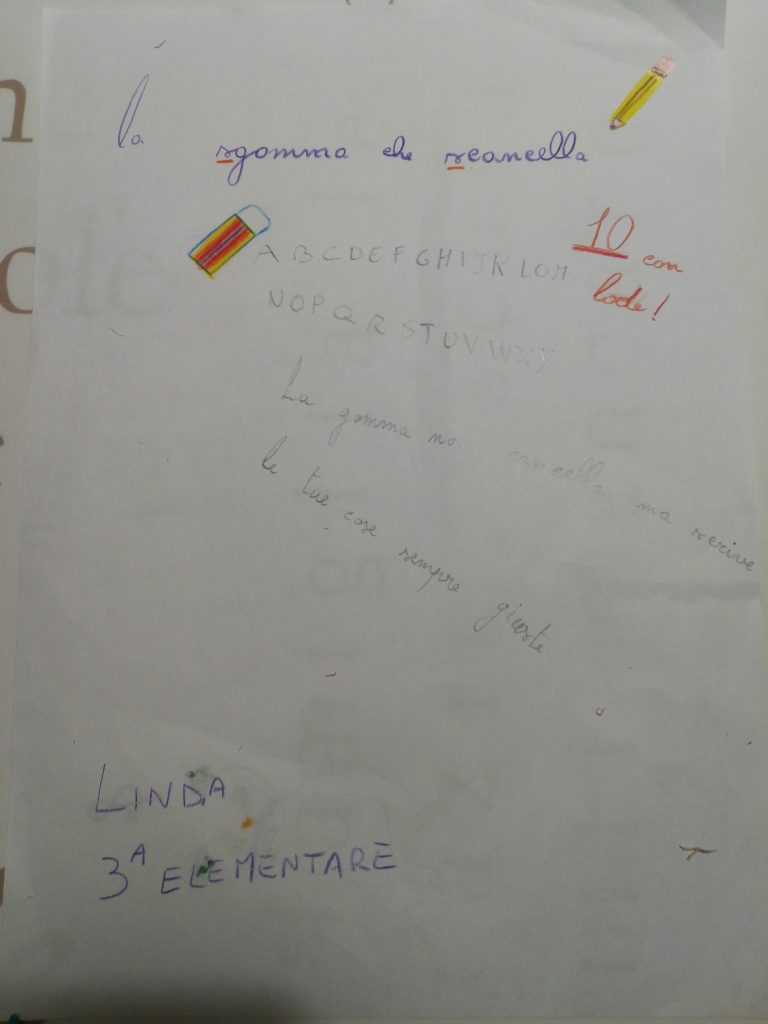 La sgomma che scancella
A B C D E F G H I J K L O M
10 con
lode!
N O P Q R S T U V W X Y
La gomma non cancella ma scrive
le tue cose sempre giuste
LINDA
3A ELEMENTARE